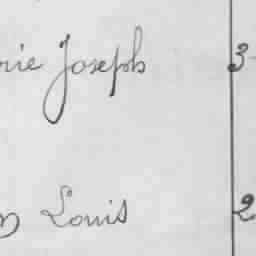 rie Joseph 3
Louis 2